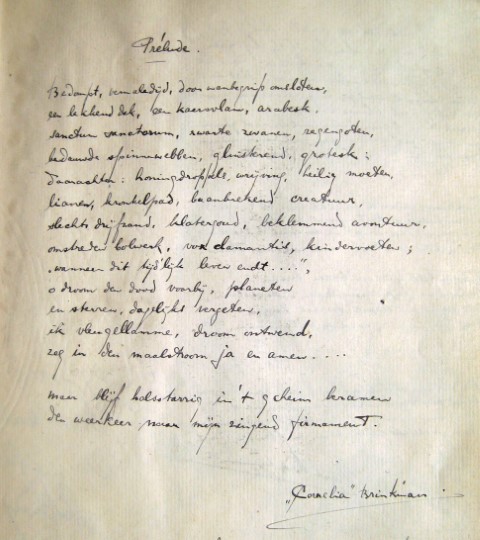 Prélude.
Bedompt, vermaledijd, door wanbegrip omsloten,
een lekkend dak, een kaarsvlam, arabesk.
sanctum sanctorum, zwarte zwanen, regengoten,
bedauwde spinnewebben, glinsterend, grotesk;
daarachter: honingdroppels, wrijving, heilig moeten,
lianen, kronkelpad, baanbrekend creatuur,
slechts drijfzand, klatergoud, beklemmend avontuur,
omstreden bolwerk, vox clamantis, kindervoeten;
„wanneer dit tijd'lijk leven endt....",
o droom den dood voorbij, planeten
en sterren, dagelijks vergeten,
ik vleugellamme, droom ontwend,
zeg in den maalstroom ja en amen....
maar blijf halsstarrig in 't geheim beramen
den weerkeer naar mijn zingend firmament.
„Cornelia" Brinkman.